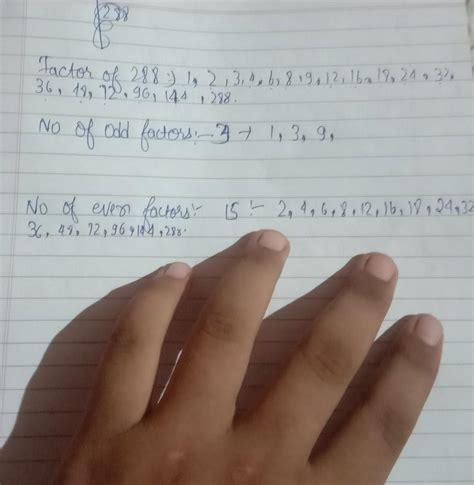 288
Factor of 288 :) 1, 2, 3, 4, 6, 8, 9, 12, 16, 18, 24, 32,
36, 48, 72, 96, 144, 288.
No of odd factors:- 3 → 1, 3, 9,
No of even factors:- 15 :- 2, 4, 6, 8, 12, 16, 18, 24, 32
36, 48, 72, 96, 144, 288.